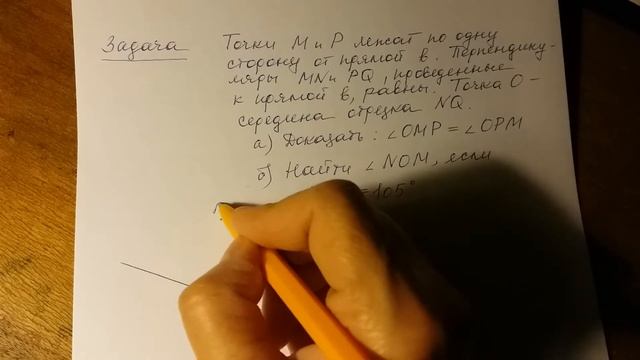 Задача
Точки М и Р лежат по одну
сторону от прямой в. Перпендику-
ляры MN и PQ, проведенные
к прямой в, равны. Точка О –
середина отрезка NQ.
а) Доказать: ∠OMP = ∠OPM
б) Найти ∠NOM, если
=105°